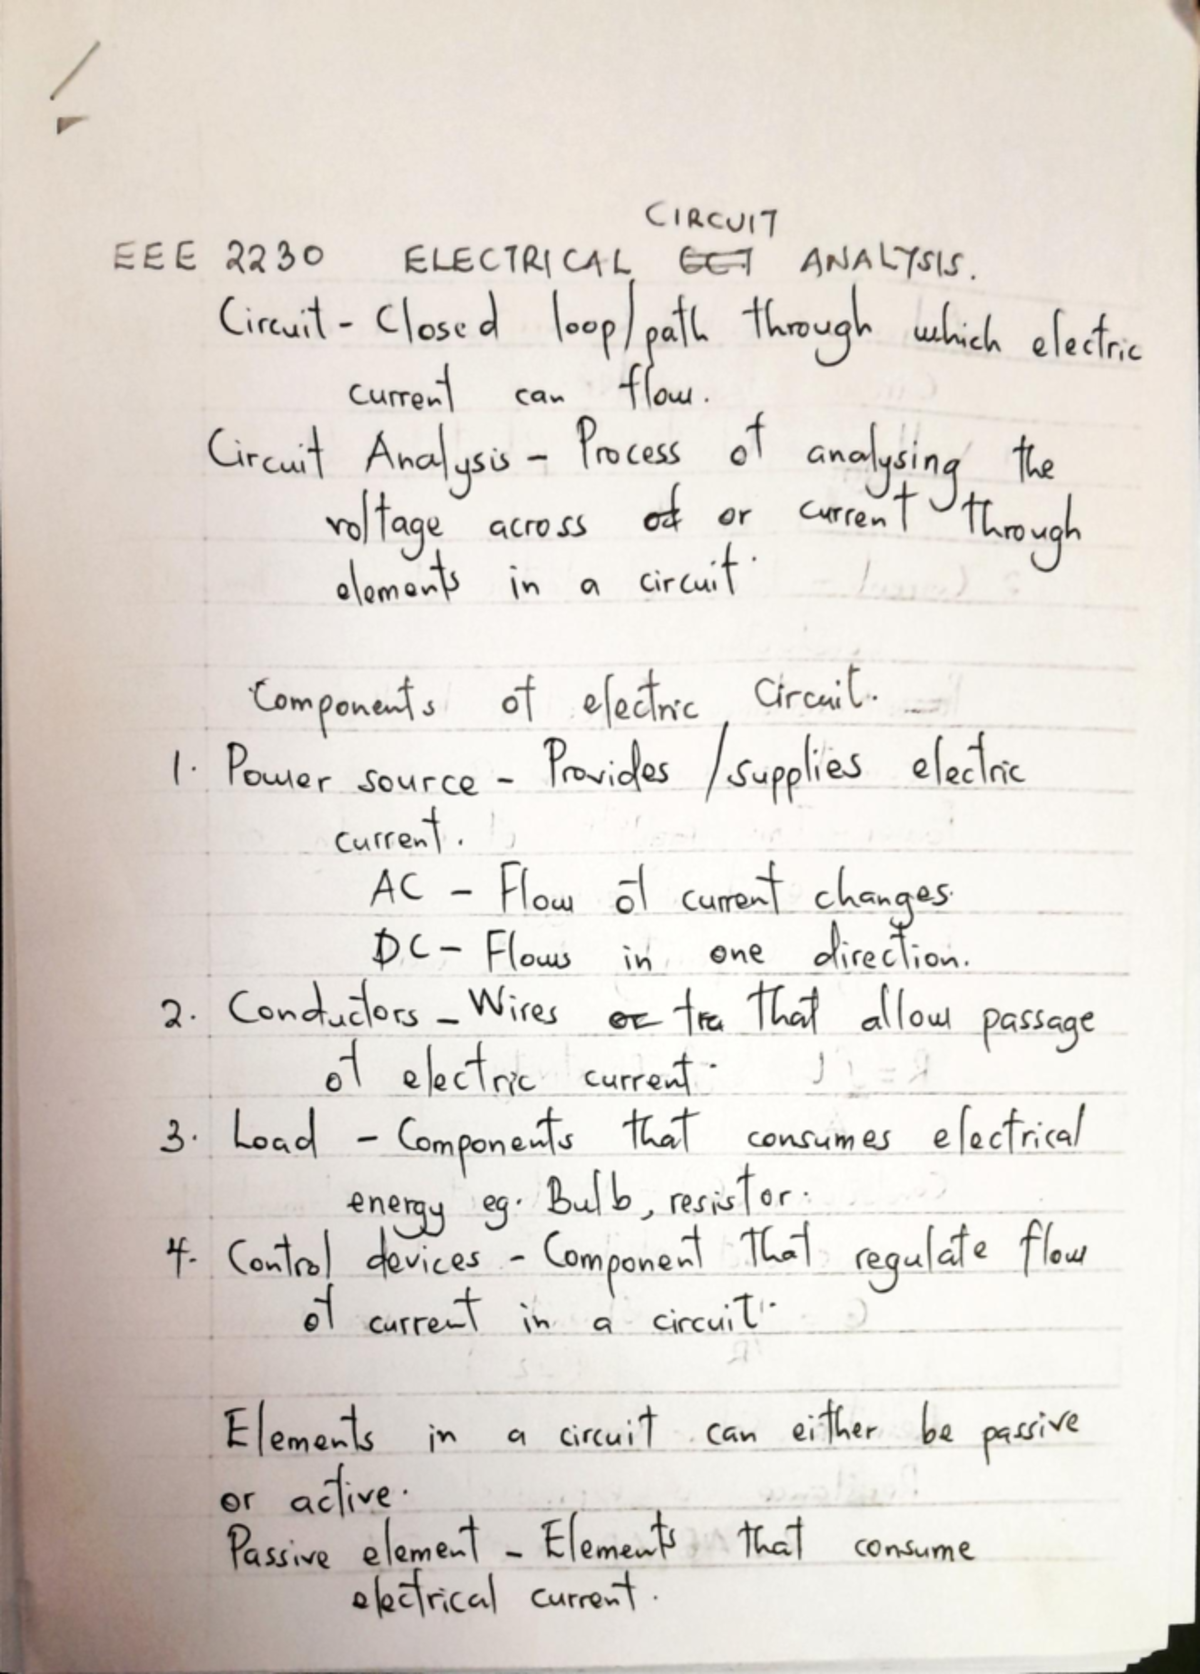 CIRCUIT
EEE 2230 ELECTRICAL ECT ANALYSIS.
Circuit - Closed loop/path through which electric
current can flow.
Circuit Analysis - Process of analysing the
voltage across of or current through
elements in a circuit.
Components of electric circuit.
1. Power source - Provides / supplies electric
current.
AC - Flow of current changes.
DC - Flows in one direction.
2. Conductors - Wires or tra that allow passage
of electric current.
3. Load - Components that consumes electrical
energy eg. Bulb, resistor.
4. Control devices - Component that regulate flow
of current in a circuit.
Elements in a circuit can either be passive
or active.
Passive element - Elements that consume
electrical current.